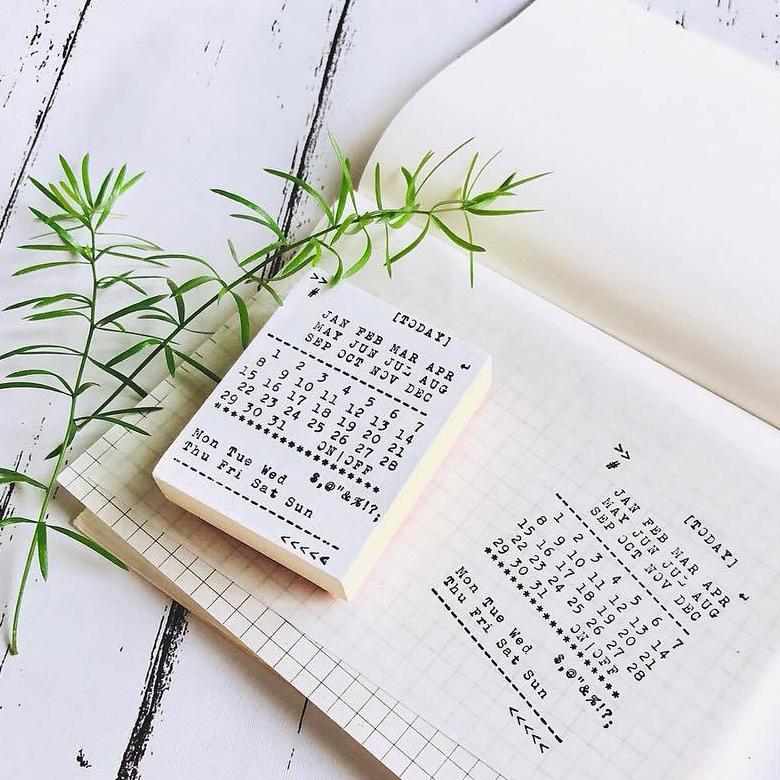 >>
#
[TODAY]
JAN FEB MAR APR ↵
MAY JUN JUL AUG
SEP OCT NOV DEC
------------------
1 2 3 4 5 6 7
8 9 10 11 12 13 14
15 16 17 18 19 20 21
22 23 24 25 26 27 28
29 30 31 ON|OFF
********************
Mon Tue Wed $,@"&%!?;
Thu Fri Sat Sun
------------------
<<<<<
>>
#
[TODAY]
JAN FEB MAR APR ↵
MAY JUN JUL AUG
SEP OCT NOV DEC
------------------
1 2 3 4 5 6 7
8 9 10 11 12 13 14
15 16 17 18 19 20 21
22 23 24 25 26 27 28
29 30 31 ON|OFF
********************
Mon Tue Wed $,@"&%!?;
Thu Fri Sat Sun
------------------
<<<<<